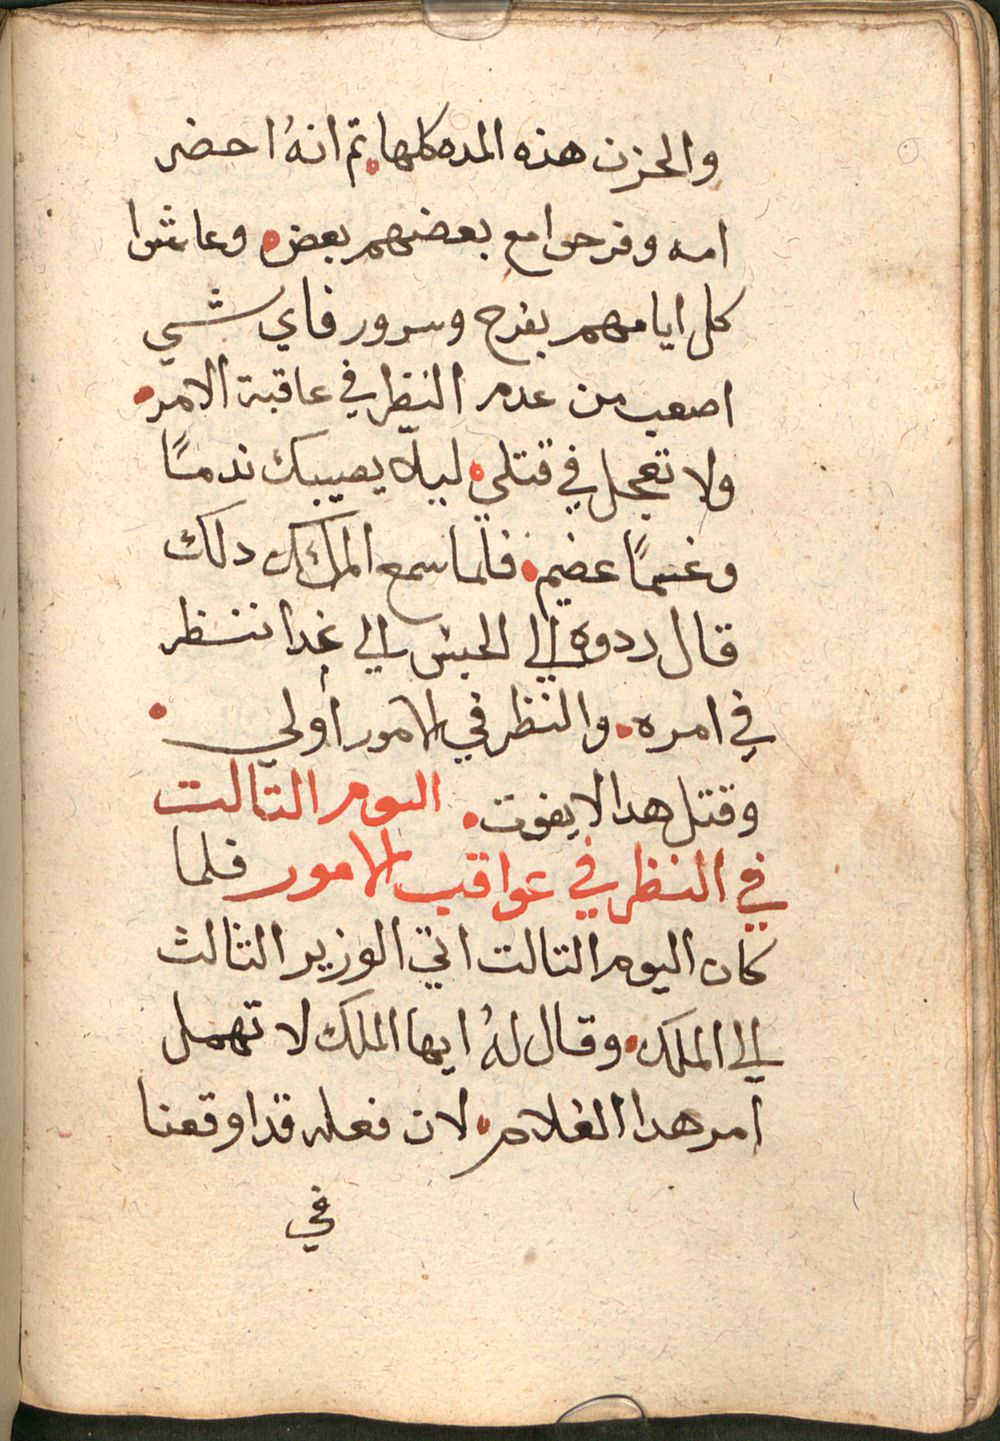 والحزن هذه المده كلها. تم انهُ احضر
امه وفرحوا مع بعضهم بعض. وعاشوا
كل ايامهم بفرح وسرور فاي شي
اصعب من عدم النظر في عاقبة الامر.
ولا تعجل في قتلي. ليلا يصيبك ندمًا
وغمًا عضيم. فلما سمع الملك دلك
قال ردوه الي الحبس الي غدا ننظر
في امره. والنظر في الامور أولي.
وقتل هدا لا يفوت. اليوم التالت
في النظر في عواقب الامور فلما
كان اليوم التالت اتي الوزير الثالث
الي الملك. وقال لهُ ايها الملك لا تهمل
امر هدا الغلام. لان فعله قد اوقعنا
في